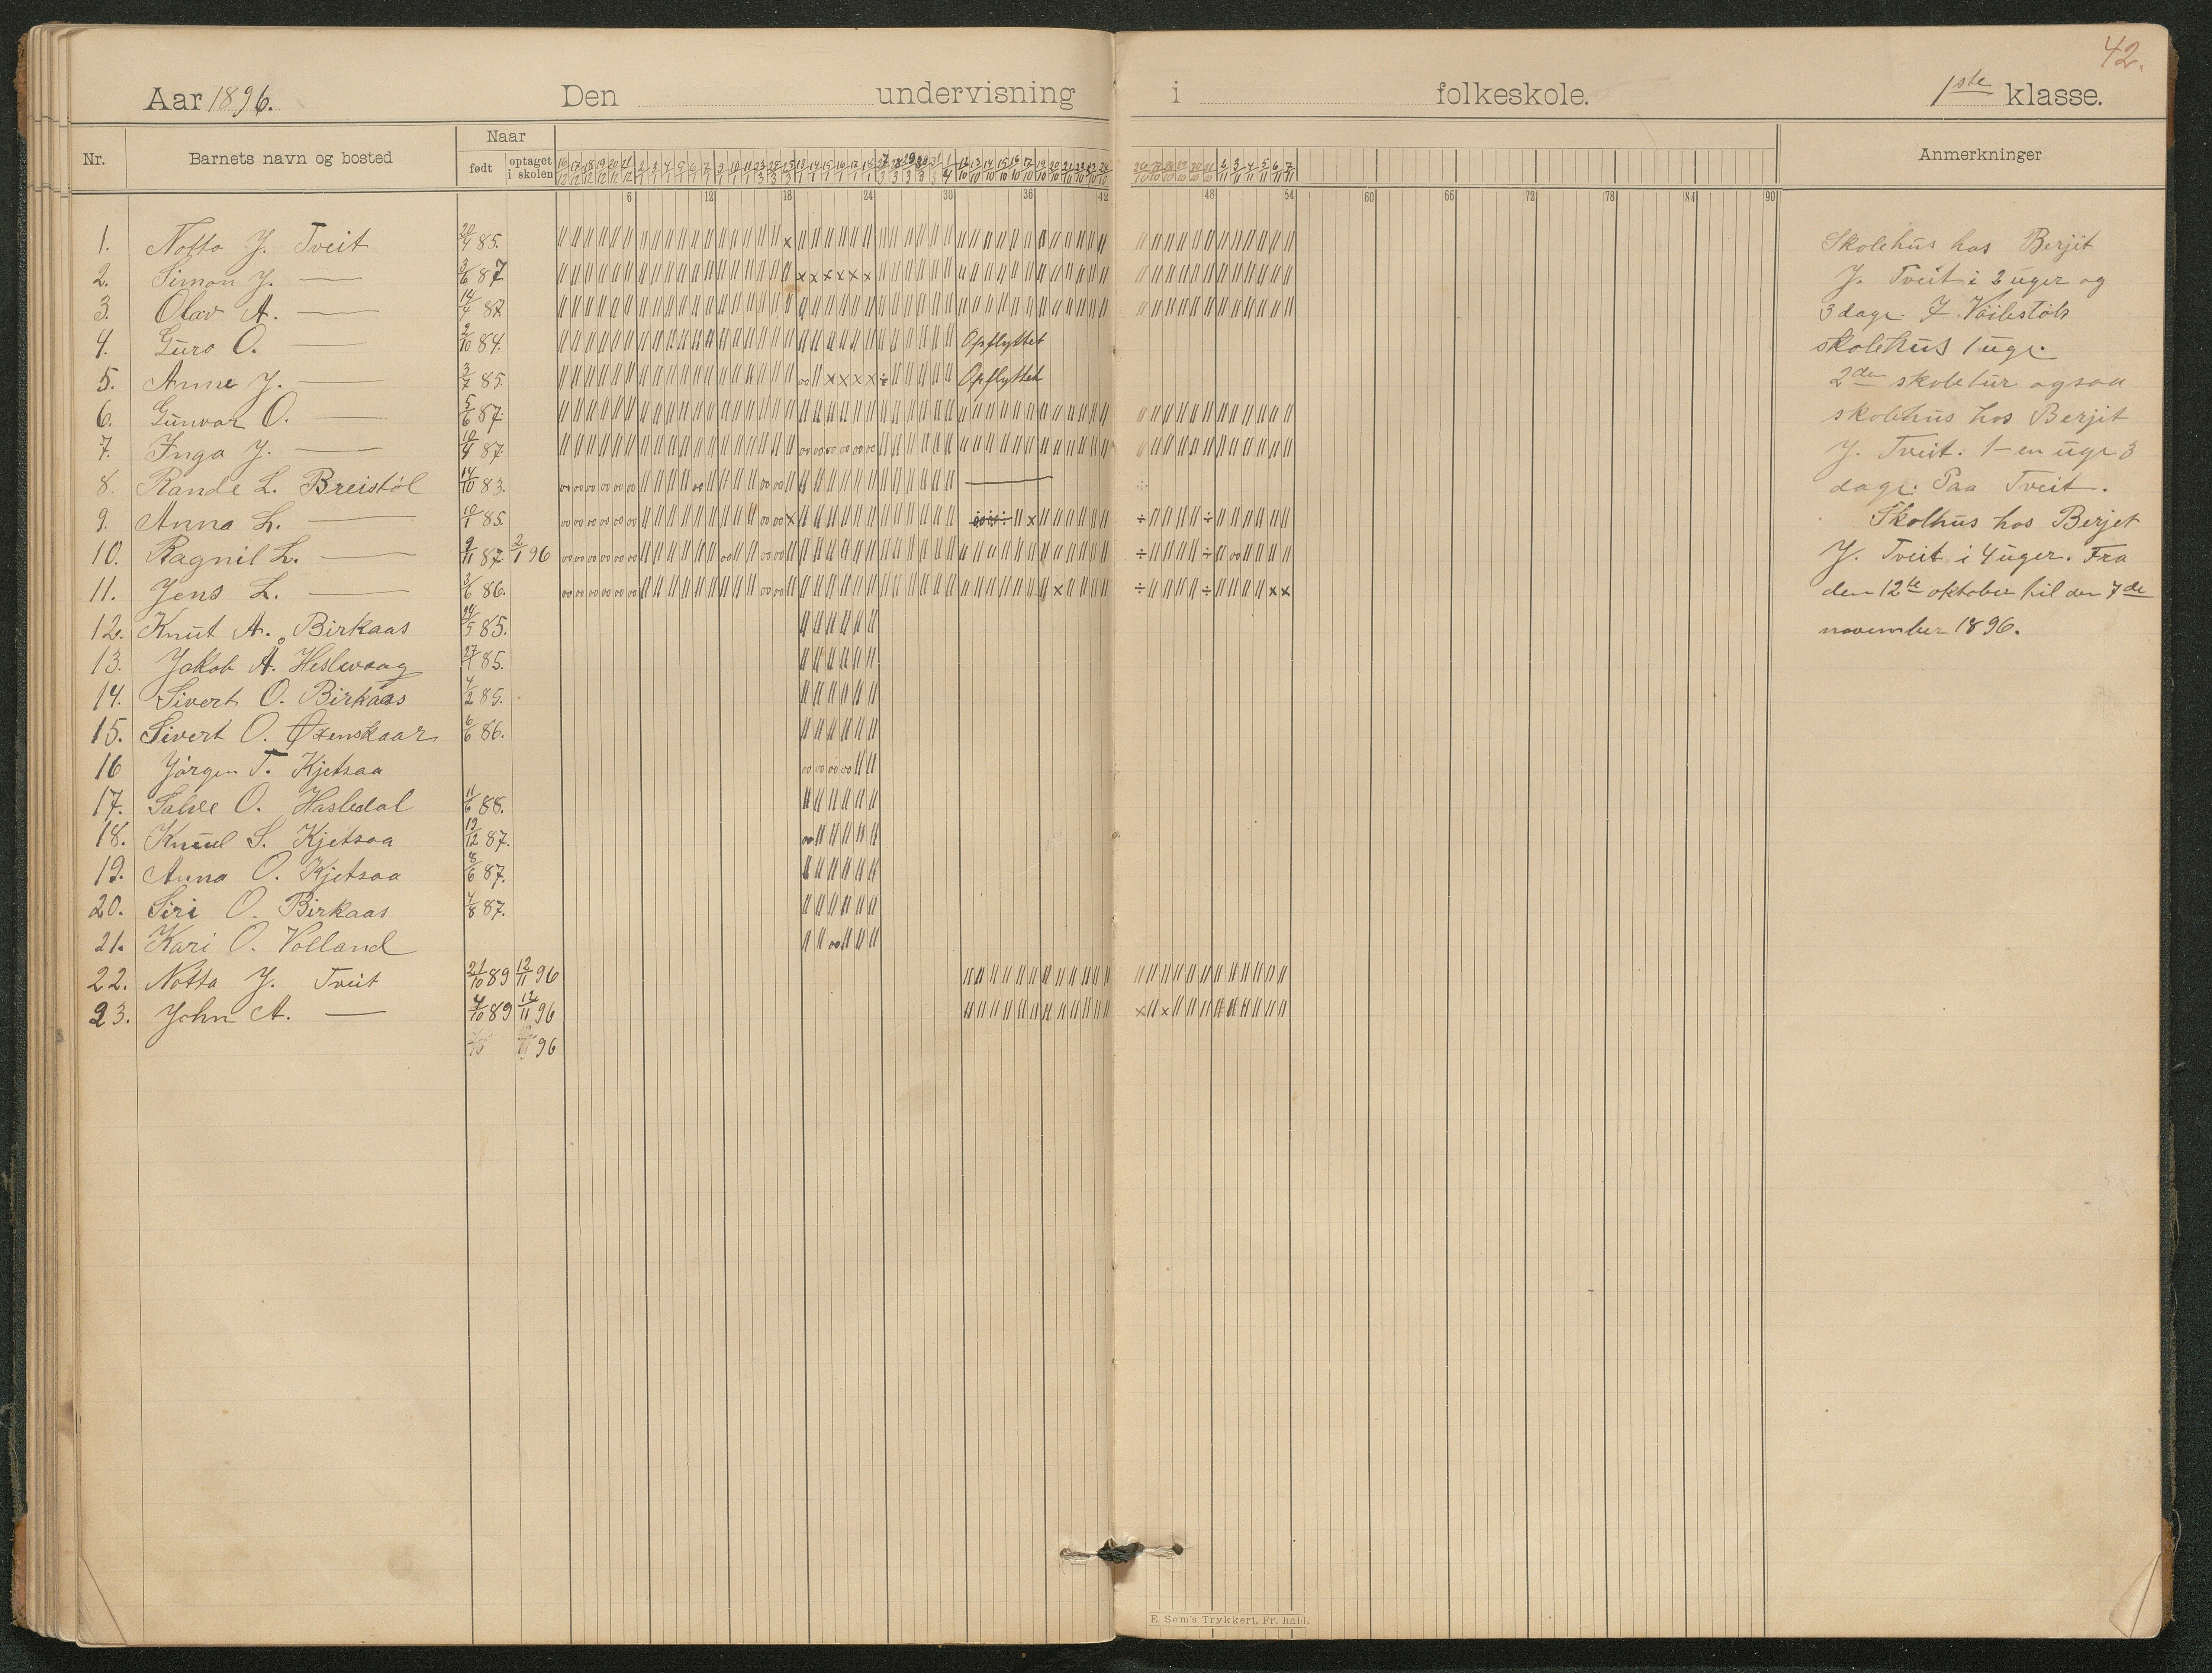 42.
Aar 1896. Den undervisning i folkeskole. 1ste klasse.
Nr. Barnets navn og bosted Naar født optaget i skolen Anmerkninger
6 12 18 24 30 36 42 48 54 60 66 72 78 84 90
1. Notto J. Tveit 20/4 85.
2. Simon J. — 3/6 87
3. Olav A. — 14/4 87
4. Guro O. — 2/10 84. Opflyttet
5. Anne J. — 3/7 85. Opflyttet
6. Gunvor O. — 5/6 87.
7. Inga J. — 10/4 87
8. Rande L. Breistöl 14/10 83.
9. Anna L. — 10/1 85.
10. Ragnil L. — 9/11 87. 2/1 96
11. Jens L. — 3/6 86.
12. Knut A. Birkaas 24/5 85.
13. Jakob Å. Heslevaag 27/1 85.
14. Sivert O. Birkaas 4/2 85.
15. Sivert O. Øxenskaar 6/6 86.
16 Jörgen T. Kjetsaa
17. Salve O. Hasledal 11/6 88.
18. Knut S. Kjetsaa 19/12 87.
19. Anna O. Kjetsaa 8/6 87.
20. Siri O. Birkaas 4/8 87.
21. Kari O. Voiland
22. Notto J. Tveit 21/10 89 12/11 96
23. John A. — 4/10 89 12/11 96
96
Skolehus hos Berjit
J. Tveit i 2 uger og
3 dage.
skolehus 1 uge.
2den skoletur ogsaa
skolehus hos Berjit
J. Tveit. 1-en uge 3
dage. Paa Tveit.
Skolhus hos Berjet
J. Tveit i 4 uger. Fra
den 12te oktober til den 7de
november 1896.
E. Sem's Trykkeri, Fr. hald.